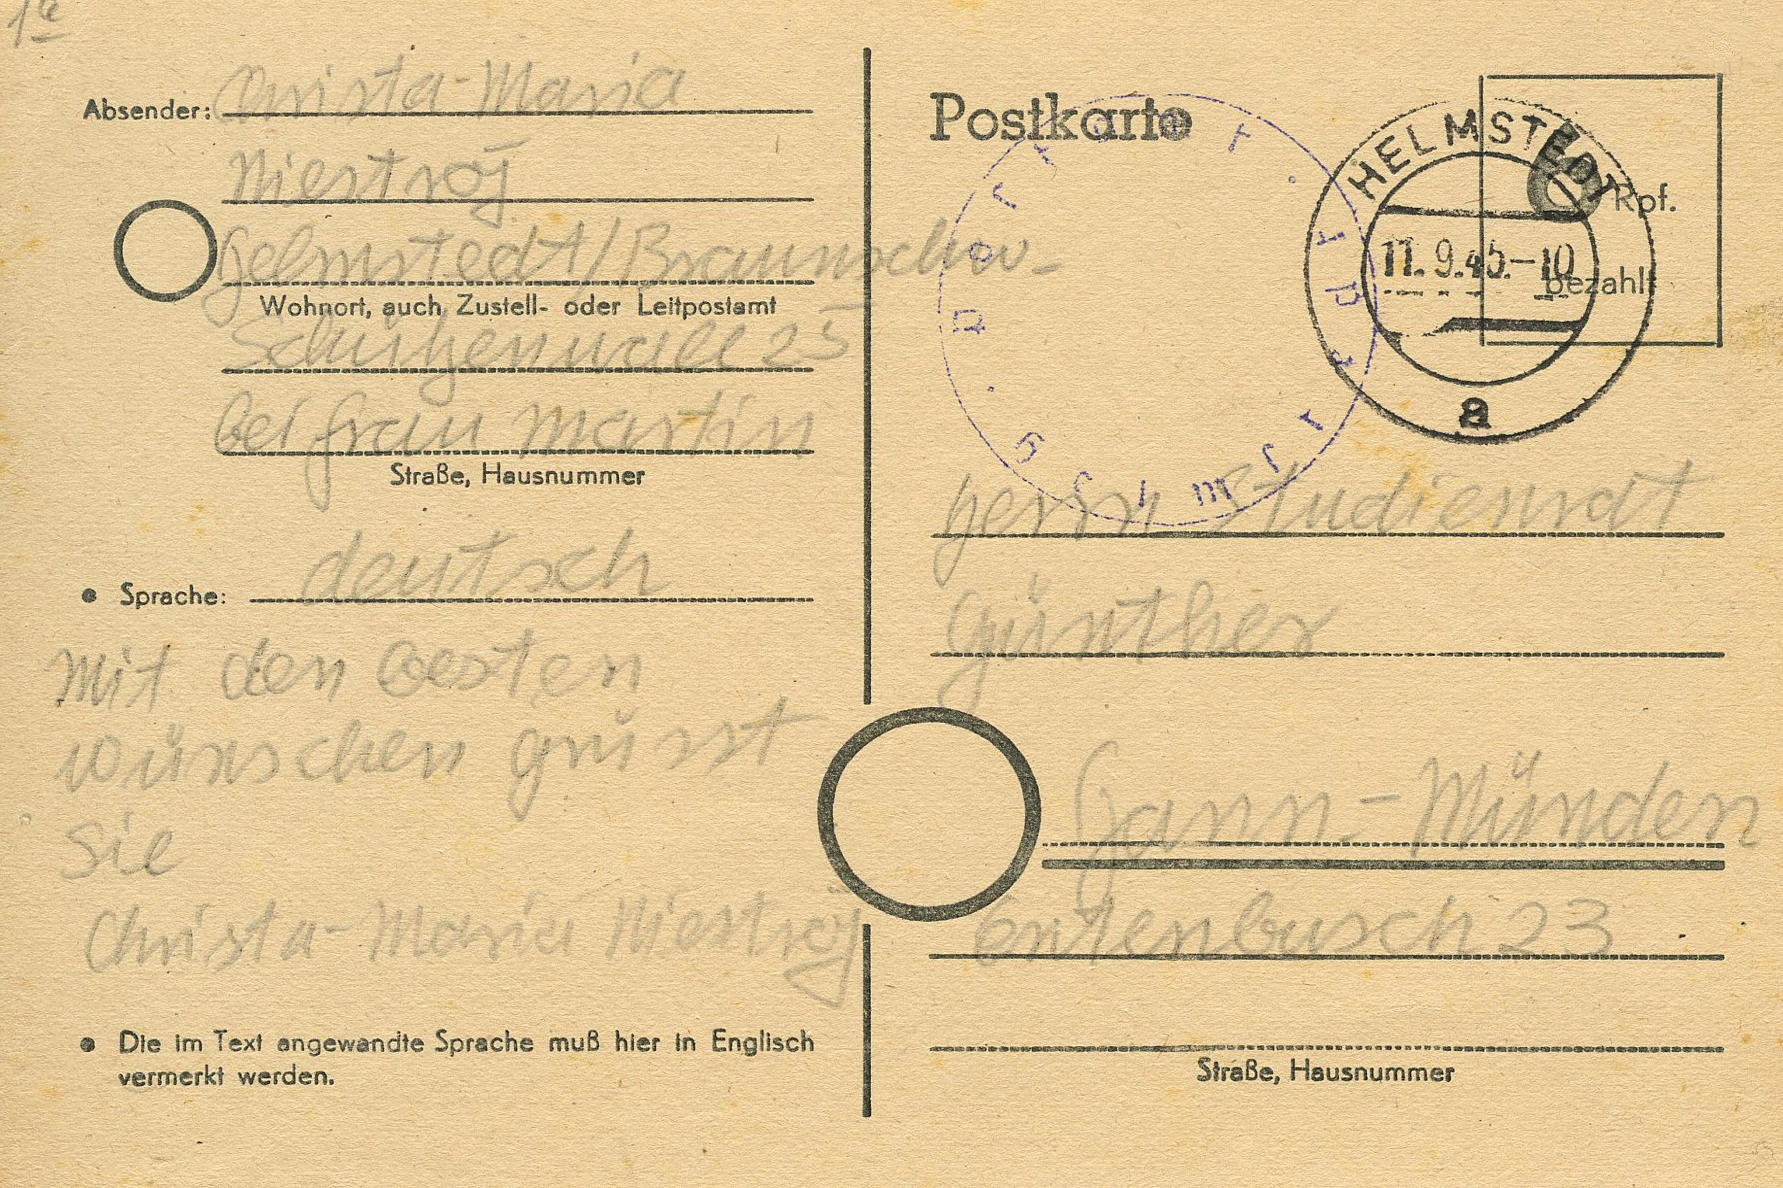 1a
Absender: Christa-Maria
Niestroj
Helmstedt/Braunschw-
Wohnort, auch Zustell- oder Leitpostamt
Schützenwall 25
bei Frau Martin
Straße, Hausnummer
Sprache: deutsch
Mit den besten
wünschen grüsst
Sie
Christa-Maria Niestroj
Die im Text angewandte Sprache muß hier in Englisch
vermerkt werden.
Postkarte
HELMSTEDT
11.9.45.-10
a
6 Rpf.
bezahlt
Herrn Studienrat
Günther
Hann-Münden
Entenbusch 23
Straße, Hausnummer